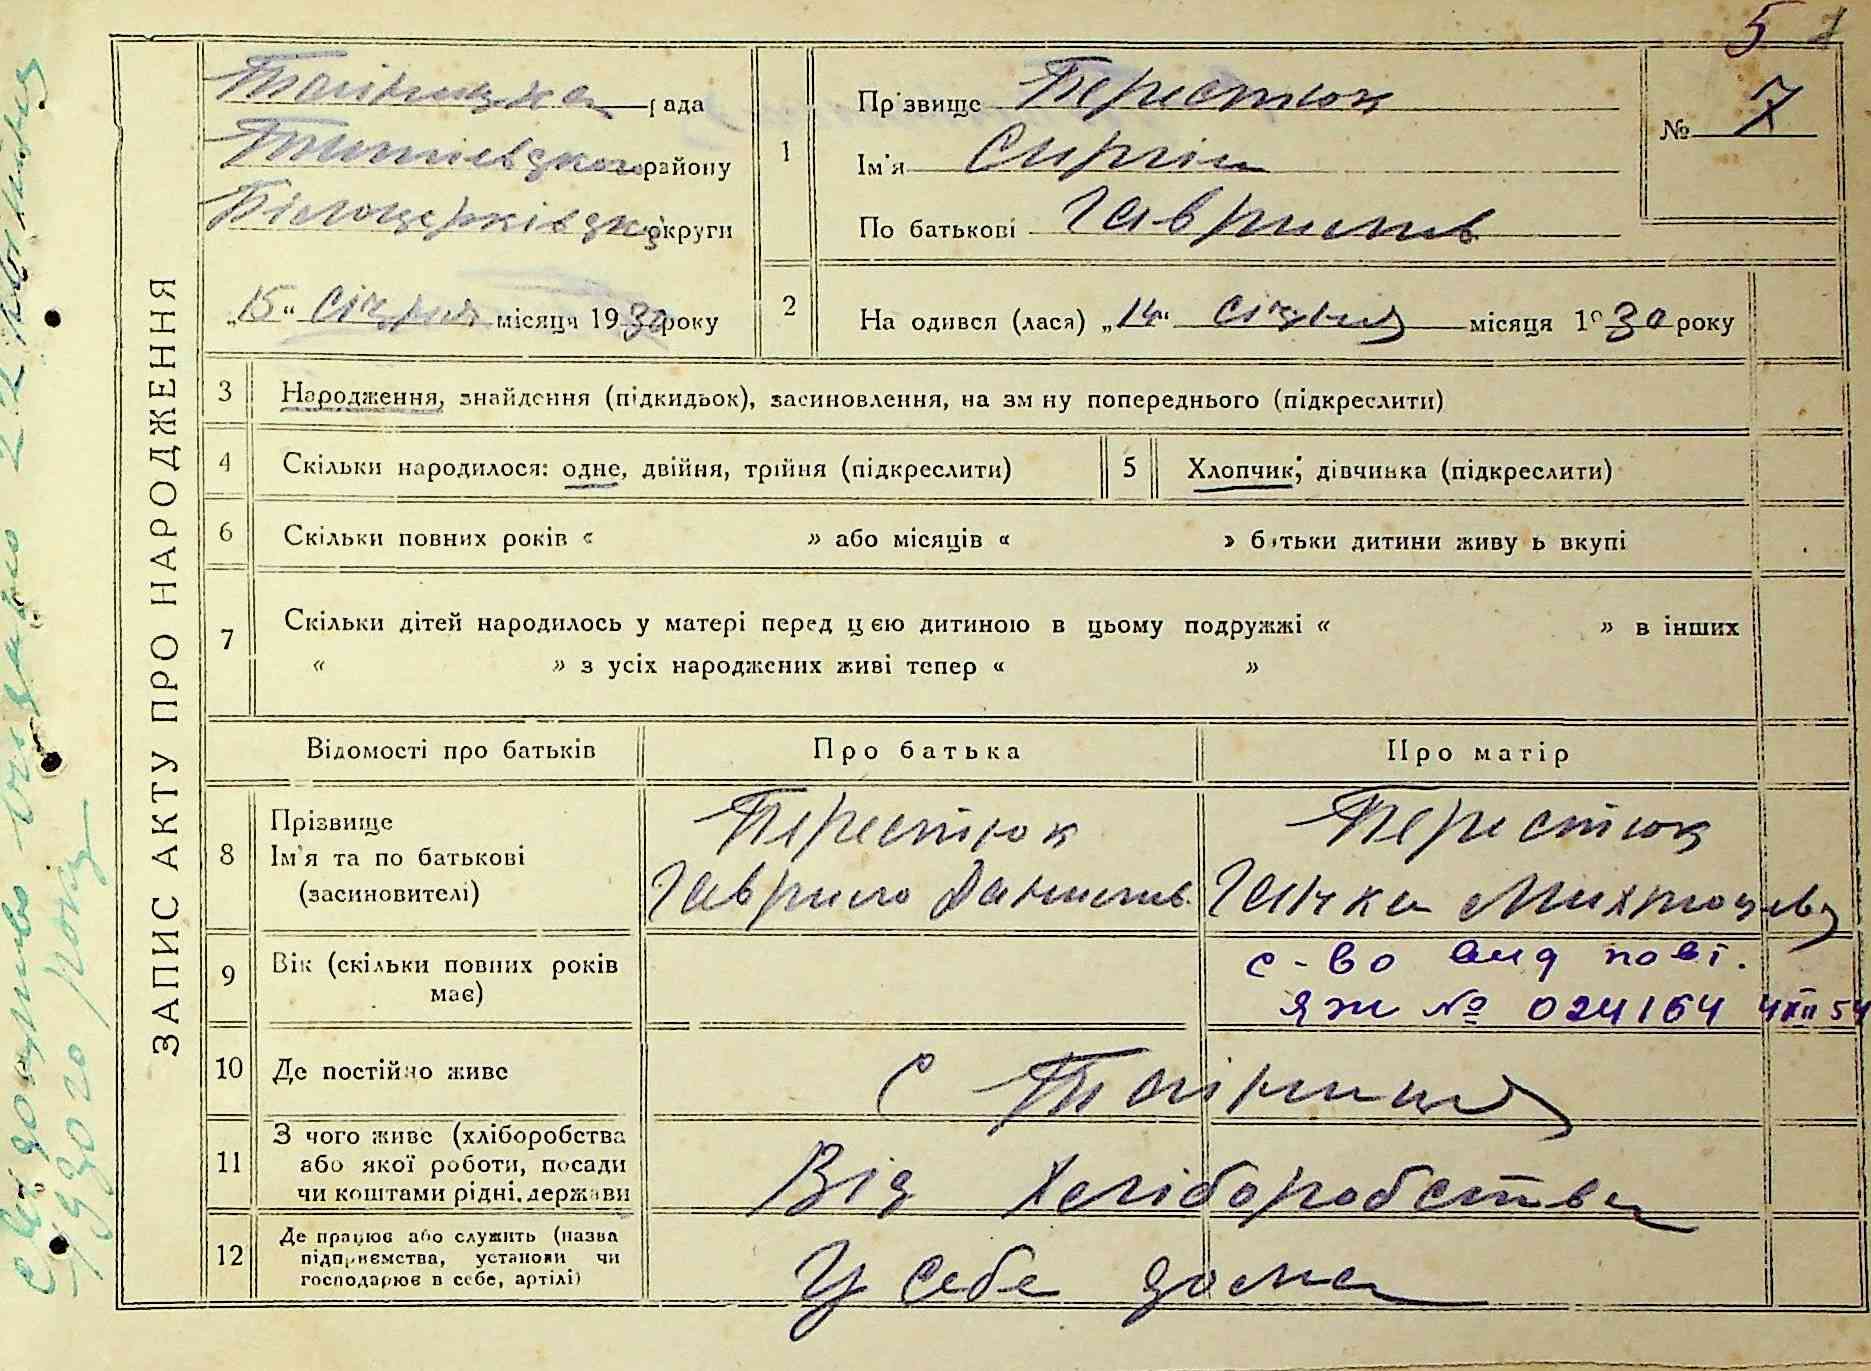 5
ЗАПИС АКТУ ПРО НАРОДЖЕННЯ
рада
Тетіївського району
Білоцерківської округи
„15" січня місяця 1930 року
1
Прізвище Перестюк
Ім'я Сиргій
По батькові Гаврилів
№ 7
2
Народився (лася) „14" січня місяця 1930 року
3 Народження, знайдення (підкидьок), засиновлення, на зміну попереднього (підкреслити)
4 Скільки народилося: одне, двійня, трійня (підкреслити)
5 Хлопчик, дівчинка (підкреслити)
6 Скільки повних років « » або місяців « » батьки дитини живуть вкупі
7 Скільки дітей народилось у матері перед цією дитиною в цьому подружжі « » в інших
« » з усіх народжених живі тепер « »
Відомості про батьків Про батька Про матір
8 Прізвище
Ім'я та по батькові
(засиновителі)
Перестюк
Гаврило Данилів
Перестюк
Ганка
9 Вік (скільки повних років
має)
с-во вид повт.
ЯЖ № 024164 4 XII 54
10 Де постійно живе
с
11 З чого живе (хліборобства
або якої роботи, посади
чи коштами рідні, держави
Від хліборобства
12 Де працює або служить (назва
підприємства, установи чи
господарює в себе, артілі)
У себе дома